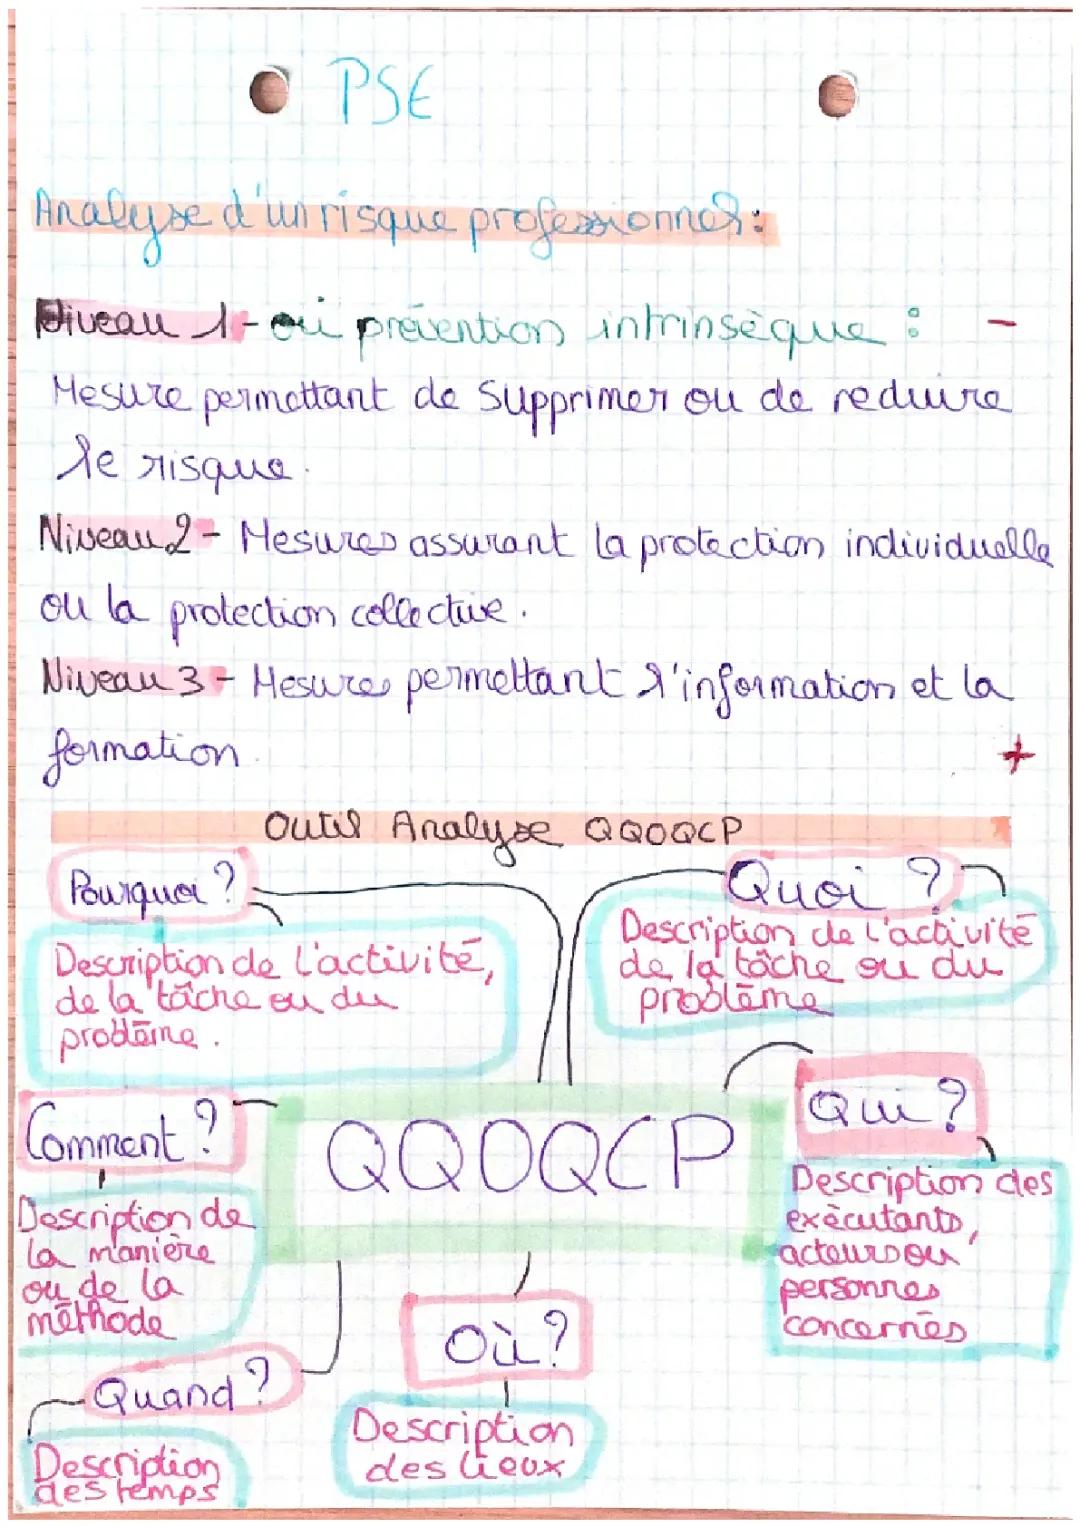 PSE
Analyse d'un risque professionnel :
Niveau 1 - ou prévention intrinsèque : -
Mesure permettant de supprimer ou de réduire
le risque.
Niveau 2 - Mesures assurant la protection individuelle
ou la protection collective.
Niveau 3 - Mesures permettant l'information et la
formation.
+
Outil Analyse QQOQCP
Pourquoi ?
Description de l'activité,
de la tâche ou du
problème.
Quoi ?
Description de l'activité
de la tâche ou du
problème
Comment ?
Description de
la manière
ou de la
méthode
QQOQCP
Qui ?
Description des
exécutants,
acteurs ou
personnes
concernés
Quand ?
Description
des temps
Où ?
Description
des lieux